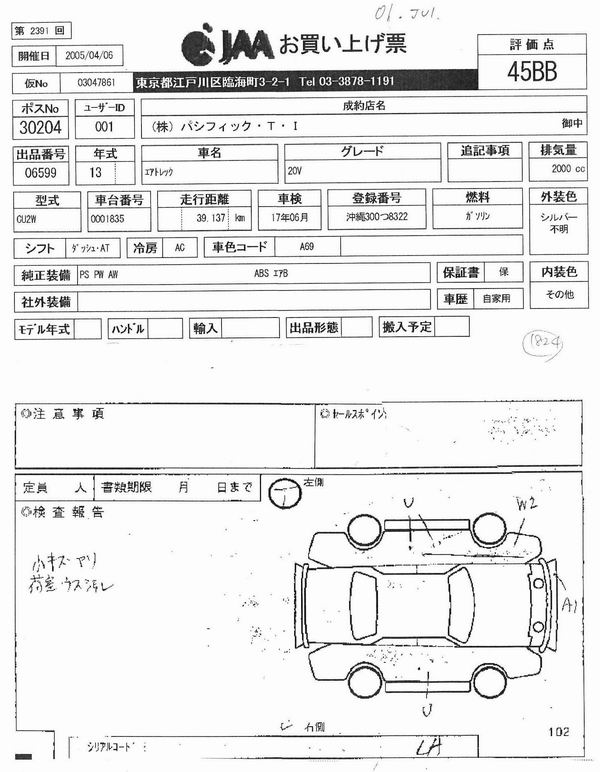 01. JUL.
第 2391 回
開催日 2005/04/06
JAA お買い上げ票
評価点
45BB
仮No 03047861
東京都江戸川区臨海町3-2-1 Tel 03-3878-1191
ポスNo ユーザーID 成約店名
30204 001 (株) パシフィック・T・I 御中
出品番号 年式 車名 グレード 追記事項 排気量
06599 13 エアトレック 20V 2000 cc
型式 車台番号 走行距離 車検 登録番号 燃料 外装色
CU2W 0001835 39,137 km 17年06月 沖縄300つ8322 ガソリン シルバー
不明
シフト ダッシュ・AT 冷房 AC 車色コード A69
純正装備 PS PW AW ABS エアB 保証書 保 内装色
社外装備 車歴 自家用 その他
モデル年式 ハンドル 輸入 出品形態 搬入予定
1824
◎注意事項 ◎セールスポイント
定員 人 書類期限 月 日まで 左側
◎検査報告
U W2
小キズアリ
荷室ウスヨゴレ
A1
U
右側
102
シリアルコード: LA